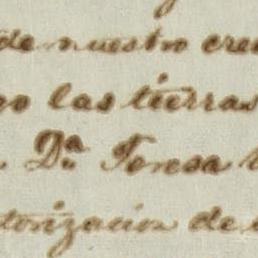 de nuestro cre
go las tierras
Dª Teresa
torizacion de